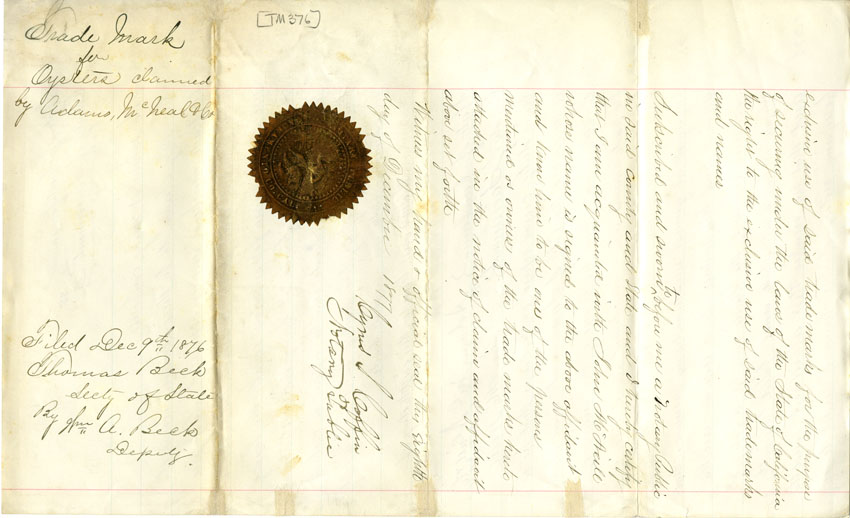 [TM 376]
Trade Mark
for
Oysters claimed
by Adams, McNeal & Co
Filed Dec 9th 1876
Thomas Beck
Secty of State
By Wm A. Beck
Deputy.
exclusive use of said trade marks for the purpose
of securing under the laws of the State of California
the right to the exclusive use of said trade marks
and names
Subscribed and sworn to before me a Notary Public
in said County and State and I further certify
that I am acquainted with John McNeill
whose name is signed to the above affidavit
and know him to be one of the persons
mentioned as owners of the trade marks herein
attached in the notice of claim and affidavit
above set forth
Witness my hand & official seal this eighth
day of December 1876
Cyrus S. Coffin
Notary Public